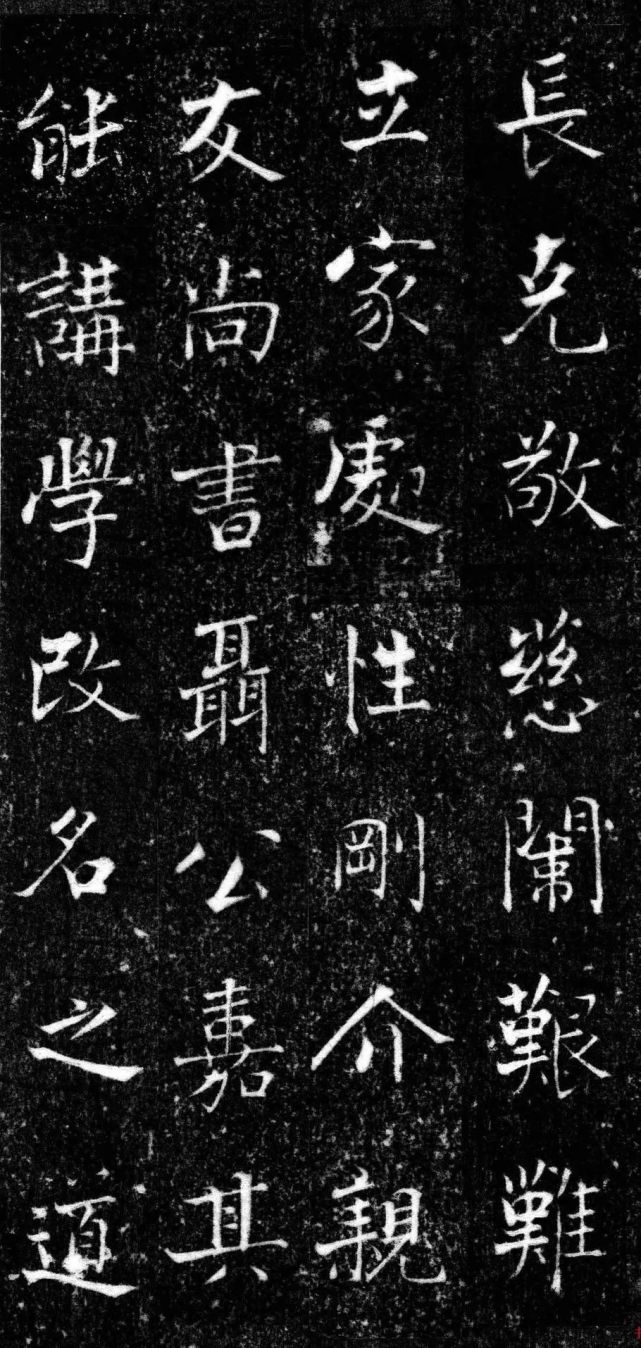 長克敬慈闌艱難
立家處性剛介親
友尚書聶公嘉其
能講學改名之道